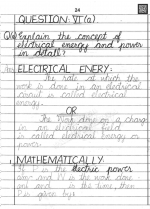 24
QUESTION: VI (a)
Q(a) Explain the concept of
electrical energy and power
in detail?
Ans: ELECTRICAL ENERY:
The rate at which the
work is done in an electrical
circuit is called electrical
energy.
OR
The work done on a charge
in an electrical field
is called electrical energy or
power.
MATHEMATICALLY:
If P is the electric power
and W is the work done
and is the time, then
P is given by: